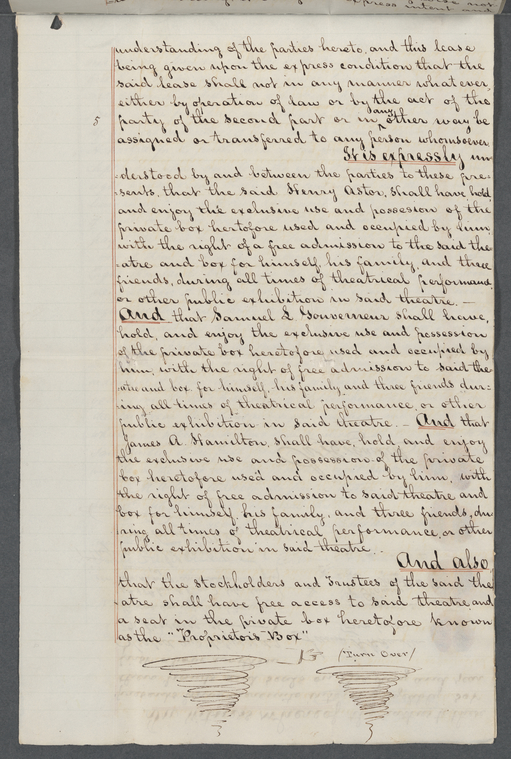 understanding of the parties hereto, and this lease
being given upon the express condition that the
said lease shall not in any manner whatever,
either by operation of law or by the act of the
5
party of the second part or in any other way be
assigned or transferred to any person whomsoever.
It is expressly un-
-derstood by and between the parties to these pre-
-sents, that the said Henry Astor, shall have, hold
and enjoy the exclusive use and possession of the
private box hertofore used and occupied by him,
with the right of a free admission to the said the-
-atre and box for himself, his family, and three
friends, during all times of theatrical performance,
or other public exhibition in said theatre. —
And that Samuel L Gouverneur shall have,
hold, and enjoy the exclusive use and possession
of the private box heretofore used and occupied by
him, with the right of free admission to said the-
-atre and box, for himself, his family, and three friends dur-
-ing all times of theatrical performance, or other
public exhibition in said theatre. — And that
James A. Hamilton, shall have, hold and enjoy
the exclusive use and possession of the private
box heretofore used and occupied by him, with
the right of free admission to said theatre and
box for himself, his family, and three friends, du-
-ring all times of theatrical performance, or other
public exhibition in said theatre. .
And also
that the stockholders and Trustees of the said the-
-atre shall have free access to said theatre, and
a seat in the private box heretofore known
as the "Proprietors Box"
(Turn Over)